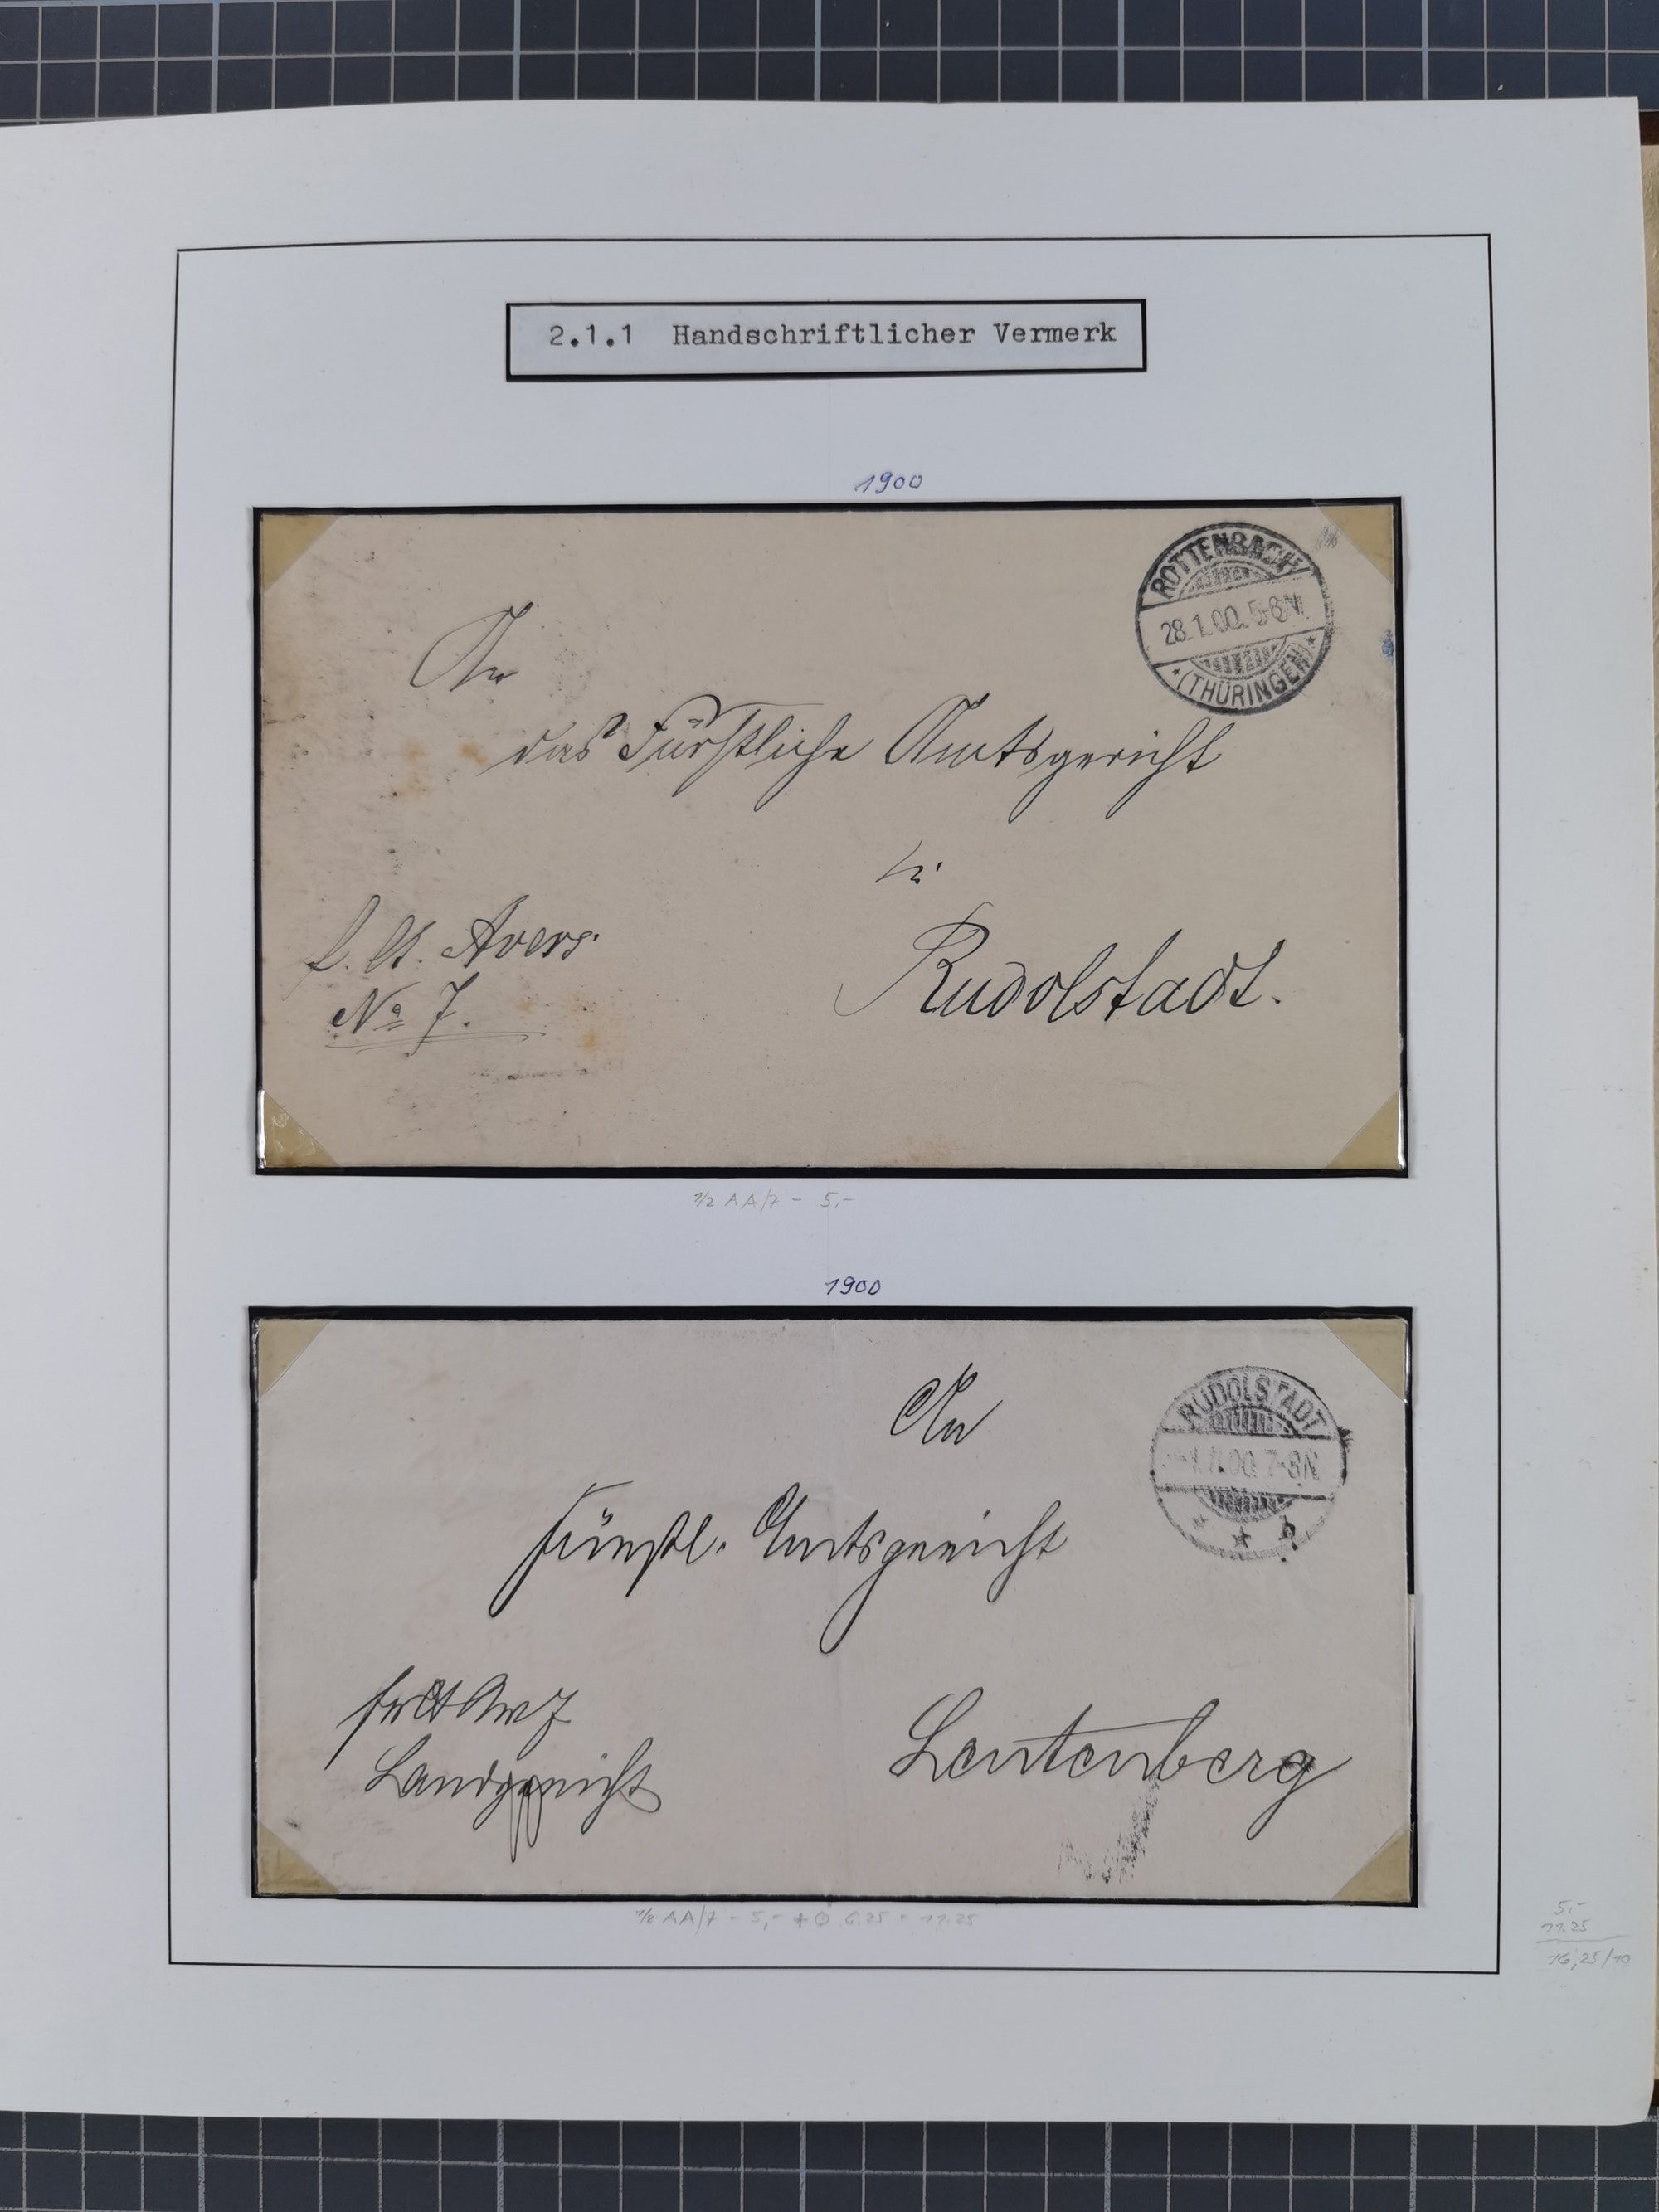 2.1.1 Handschriftlicher Vermerk
1900
ROTTENBACH
28.1.00.5-6N.
*(THÜRINGEN)*
An
das Fürstliche Amtsgericht
in
Rudolstadt.
f. Ct. Avers.
No 7.
1/2 AA/7 - 5,-
1900
RUDOLSTADT
00. 7-8N.
An
Fürstl. Amtsgericht
Leutenberg
Landgericht
1/2 AA/7 - 5,- + 6.25 = 11.25
5,-
11.25
16,25/10